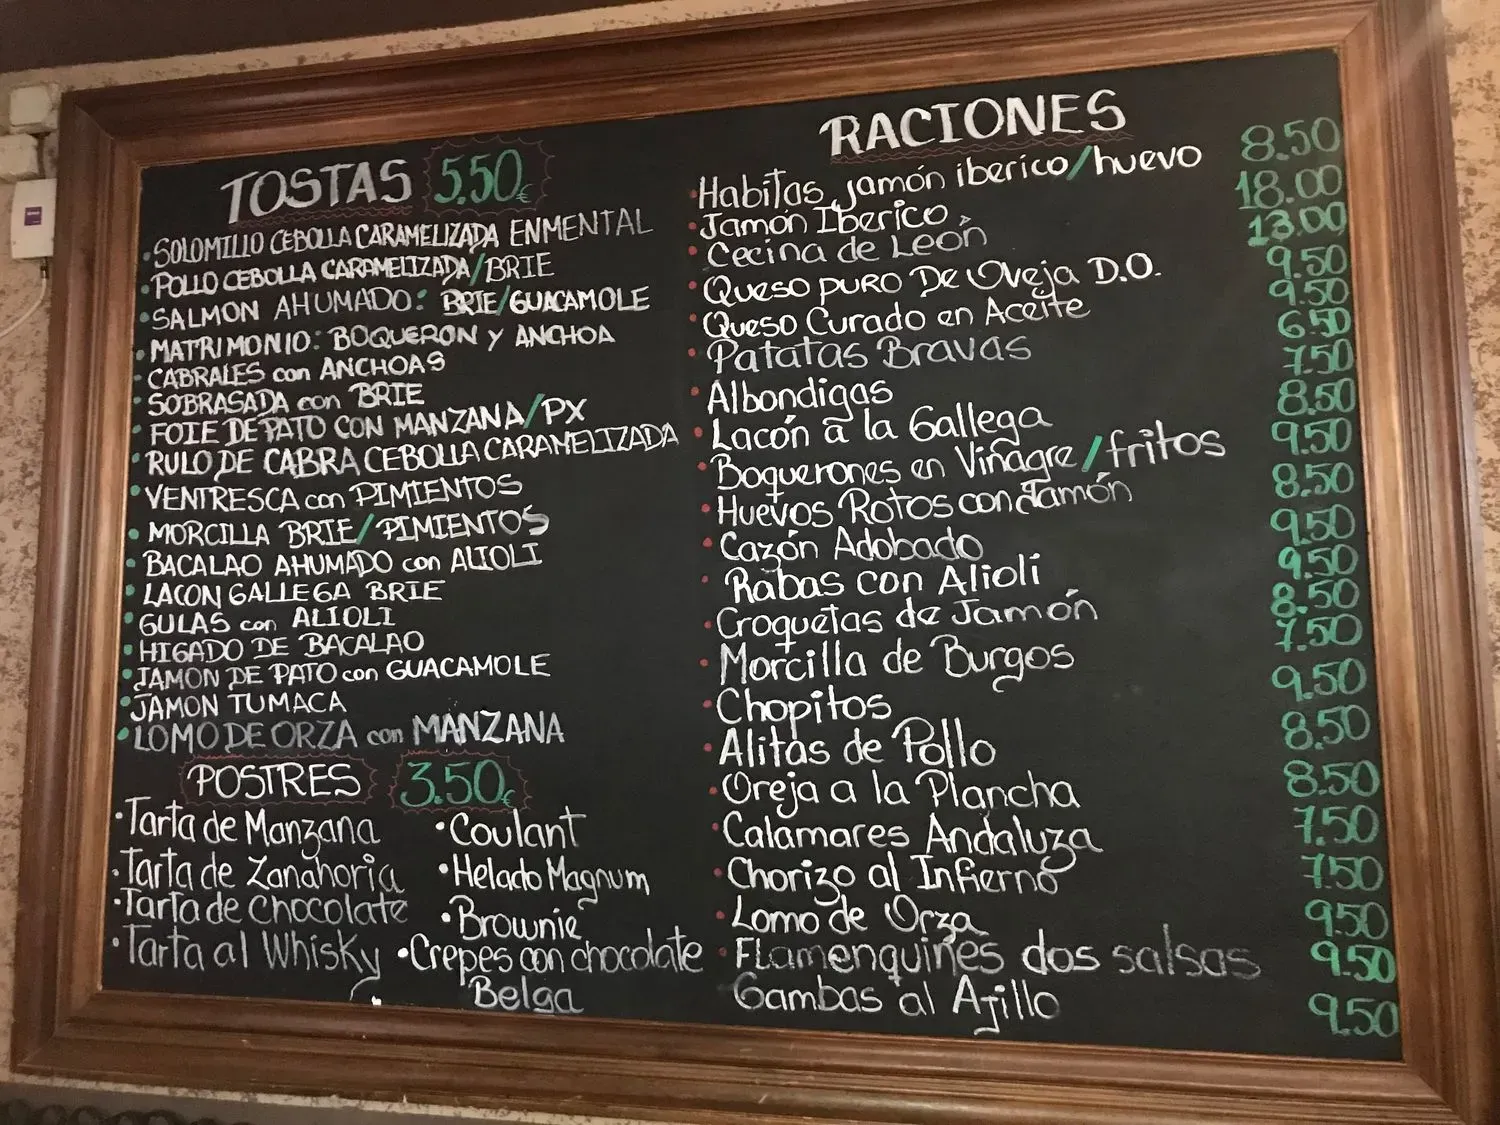 TOSTAS 5.50€
SOLOMILLO CEBOLLA CARAMELIZADA ENMENTAL
POLLO CEBOLLA CARAMELIZADA/BRIE
SALMON AHUMADO: BRIE/GUACAMOLE
MATRIMONIO: BOQUERON Y ANCHOA
CABRALES con ANCHOAS
SOBRASADA con BRIE
FOIE DE PATO CON MANZANA/PX
RULO DE CABRA CEBOLLA CARAMELIZADA
VENTRESCA con PIMIENTOS
MORCILLA BRIE/PIMIENTOS
BACALAO AHUMADO con ALIOLI
LACON GALLEGA BRIE
GULAS con ALIOLI
HIGADO DE BACALAO
JAMON DE PATO con GUACAMOLE
JAMON TUMACA
LOMO DE ORZA con MANZANA
POSTRES 3.50€
Tarta de Manzana
Tarta de Zanahoria
Tarta de chocolate
Tarta al Whisky
Coulant
Helado Magnum
Brownie
Crepes con chocolate
Belga
RACIONES
Habitas jamón iberico/huevo 8.50
Jamón Iberico 18.00
Cecina de León 13.00
Queso puro De Oveja D.O. 9.50
Queso Curado en Aceite 9.50
Patatas Bravas 6.50
Albondigas 7.50
Lacón a la Gallega 8.50
Boquerones en Vinagre/fritos 9.50
Huevos Rotos con Jamón 8.50
Cazón Adobado 9.50
Rabas con Alioli 9.50
Croquetas de Jamón 8.50
Morcilla de Burgos 7.50
Chopitos 9.50
Alitas de Pollo 8.50
Oreja a la Plancha 8.50
Calamares Andaluza 7.50
Chorizo al Infierno 7.50
Lomo de Orza 9.50
Flamenquines dos salsas 9.50
Gambas al Ajillo 9.50